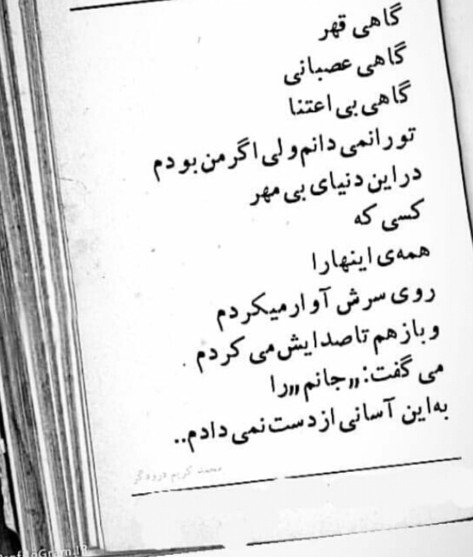 گاهی قهر
گاهی عصبانی
گاهی بی اعتنا
تورانمی دانم ولی اگر من بودم
دراین دنیای بی مهر
کسی که
همه‌ی اینهارا
روی سرش آوارمیکردم
وبازهم تاصدایش می کردم
می گفت: „جانم„را
به‌این آسانی ازدست نمی دادم..
محمد کریم درودگر